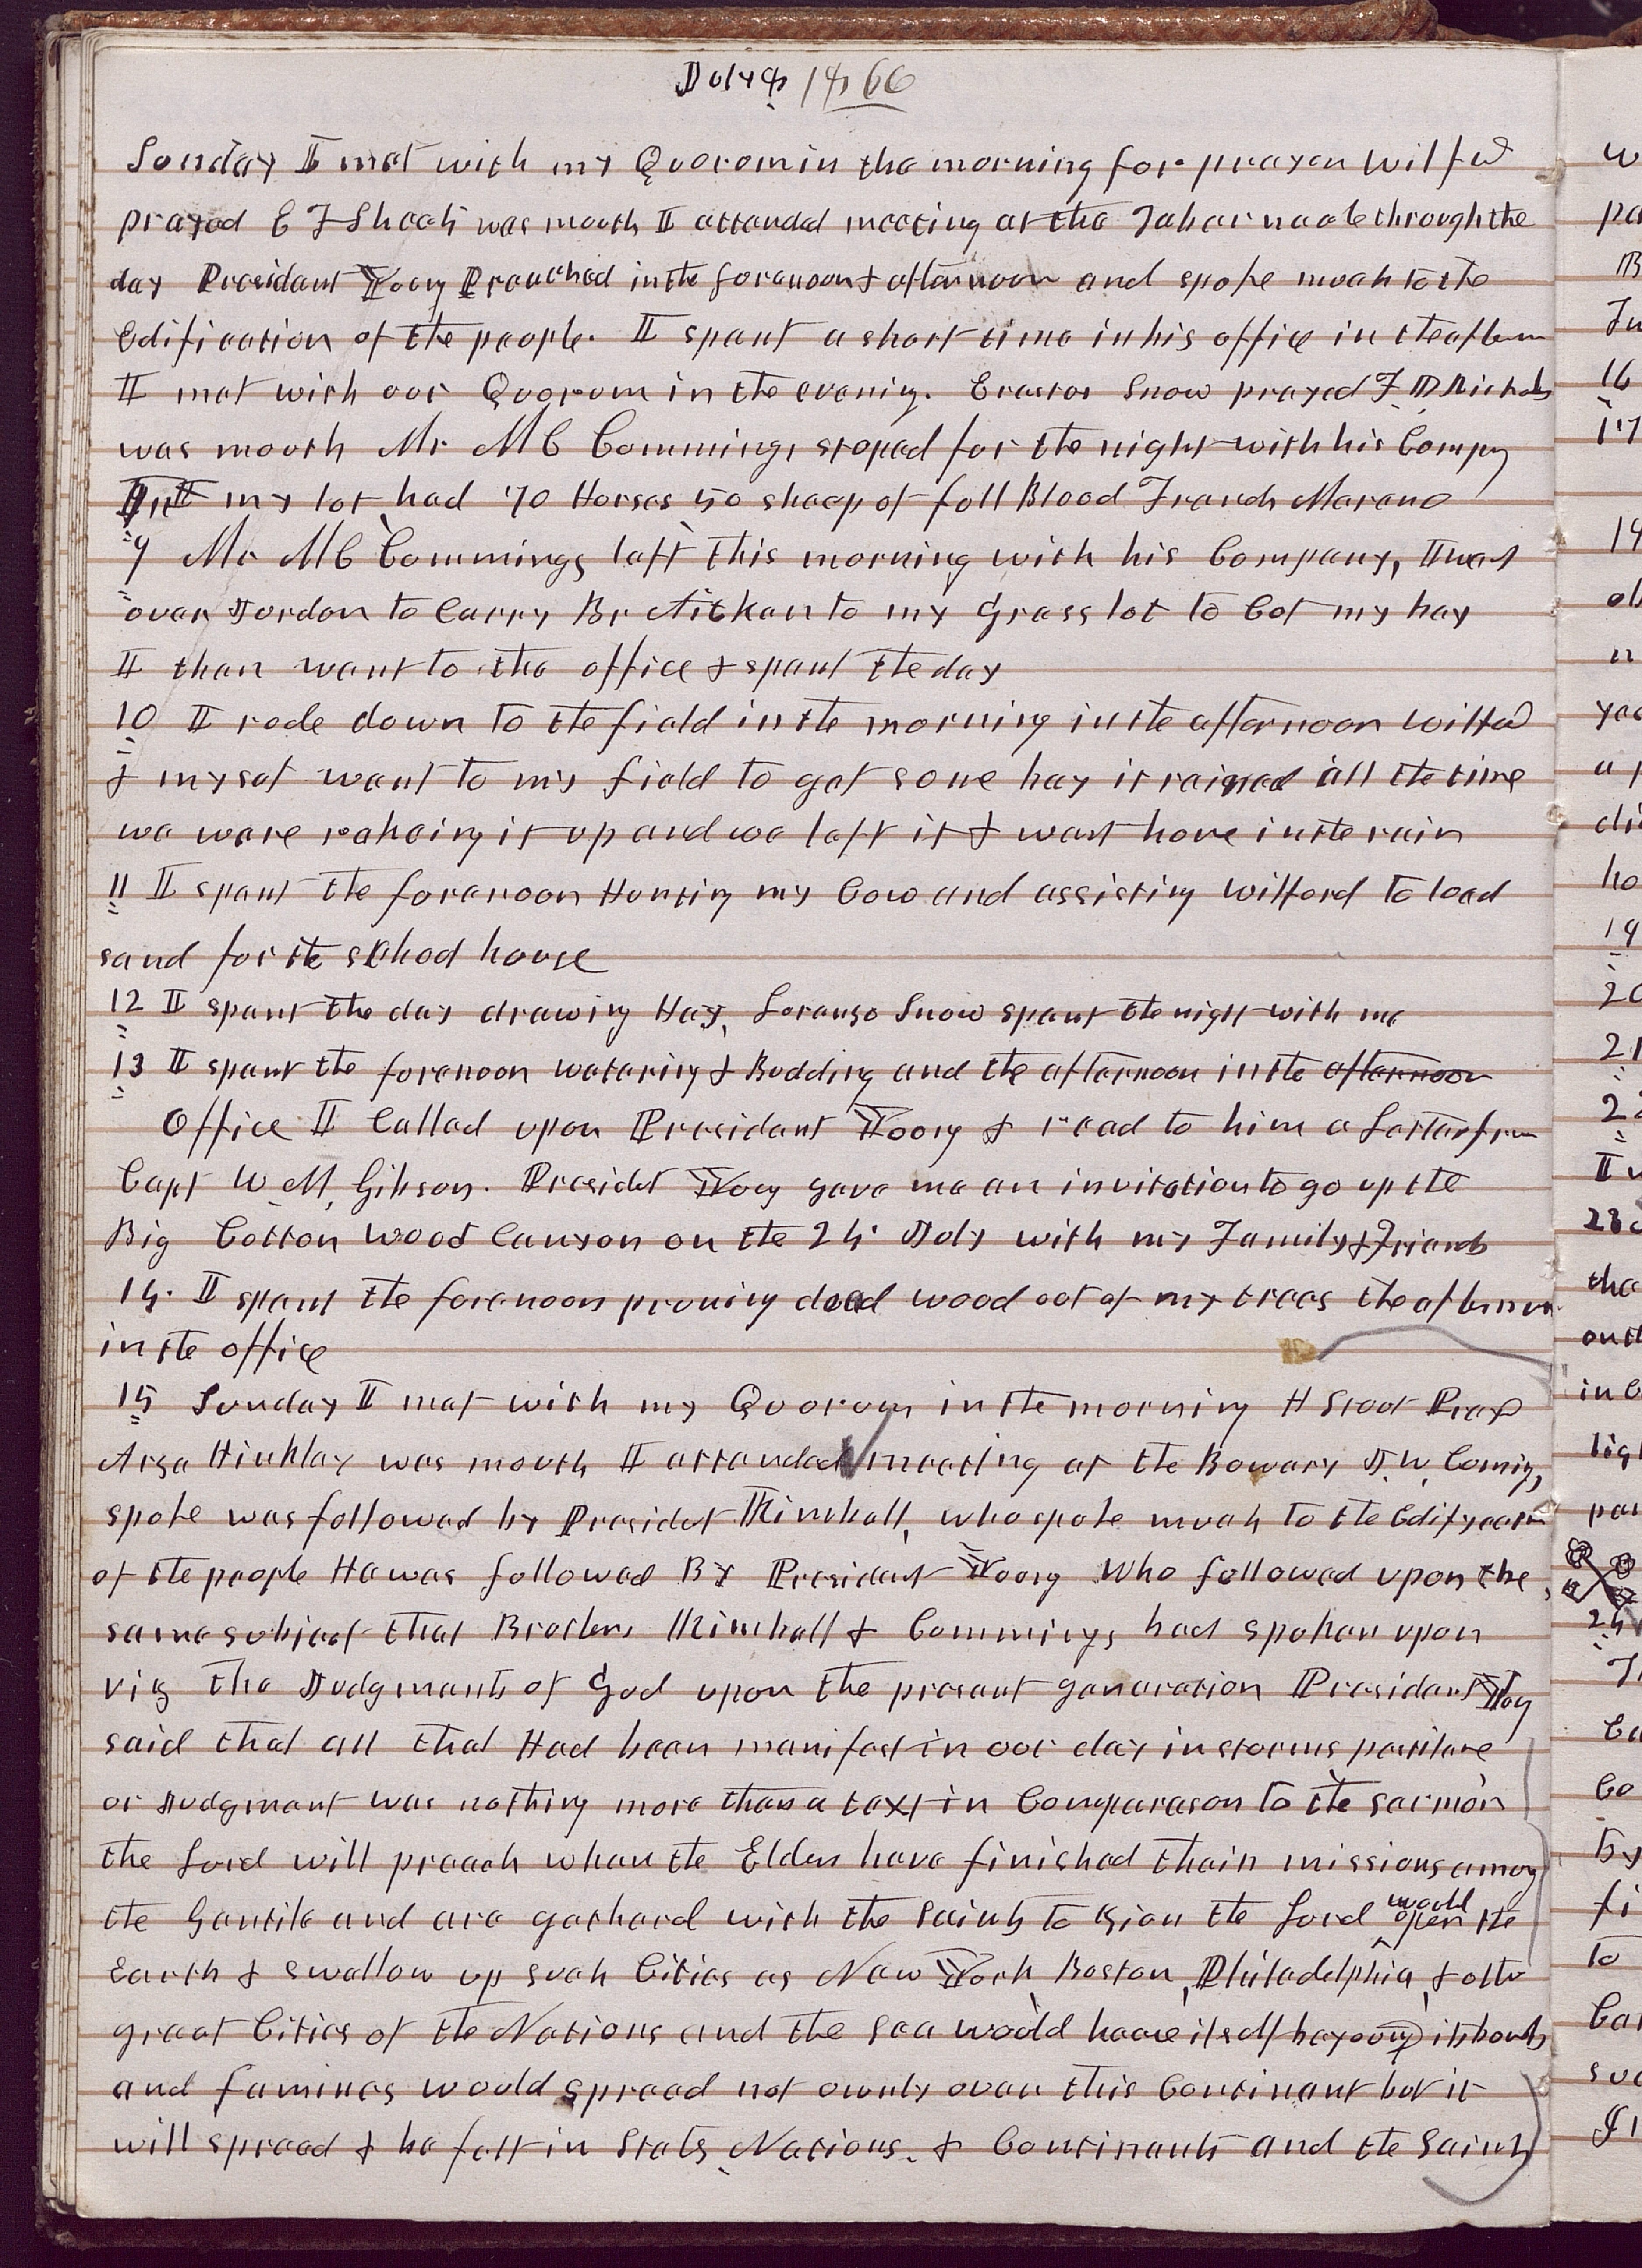 July 8 1866
Sunday I met with my Quorum in the morning for prayer Wilfd
prayed E F Sheets was mouth I attended meeting at the Tabernacle through the
day President Young Preached in the forenoon & afternoon and spoke much to the
Edification of the people. I spent a short time in his office in the aftern
I met with our Quorum in the evenig. Erastus Snow prayed F D Richads
was mouth Mr M C Cummings stoped for the night with his Compny
In my lot had 70 Horses 50 sheep of full Blood French Mareno
9 Mr M C Cummings left this morning with his Company, I went
over Jordon to Carry Br Aitken to my Grass lot to Cut my hay
I then went to the office & spent the day
10 I rode down to the field in the morning in the afternoon Wilfd
& myself went to my field to get some hay it rained all the time
we were rakeing it up and we left it & went home in the rain
11 I spent the forenoon Hunting my Cow and assisting Wilford to load
sand for the school house
12 I spent the day drawing Hay, Loranzo Snow spent the night with me
13 I spent the forenoon watering & Budding and the afternoon in the afternoon
Office I Called upon President Young & read to him a Letter from
Capt W. M, Gibson. Presidet Young gave me an invitation to go up the
Big Cotton Wood Canyon on the 24. July with my Family & Friends
14. I spent the forenoon pruning dead wood out of my trees the afternoon
in the office
15 Sunday I met with my Quorum in the morning H Stout Prayd
Arza Hinkley was mouth I attended meeting at the Bowery J. W. Cumings,
spoke was followed by Presidet Kimball, who spoke much to the Edifycation
of the people He was followed By President Young Who followed upon the
same subject that Brothers Kimball & Cummings had spoken upon
viz the Judgments of God upon the present generation President Yog
said that all that Had been manifest in our day in storms pestilence
or Judgment was nothing more than a text in Comparason to the sermon
the Lord will preach when the Elders have finished their missions among
the Gentile and are gatherd with the Saints to Zion the Lord would open the
Earth & swallow up such Cities as New York, Boston, Philadelphia, & other
great Cities of the Nations and the sea would heave itself beyound its bounds
and famines would spread not ownly over this Continant but it
will spread & be felt in Stats, Nations, & Continants and the Saints